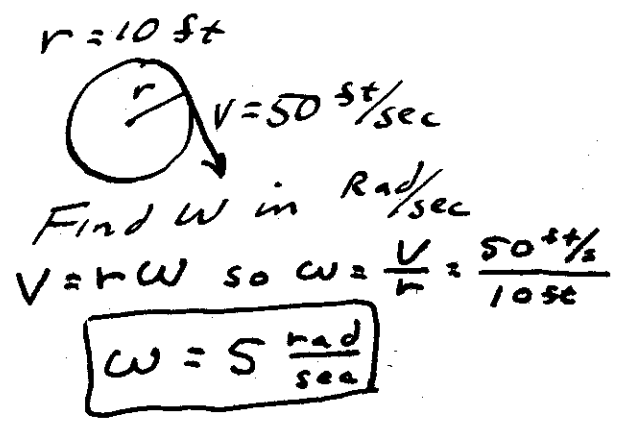 r = 10 ft
r
V = 50 ft/sec
Find ω in Rad/sec
V = rω so ω = V/r = 50 ft/s / 10 ft
ω = 5 rad/sec